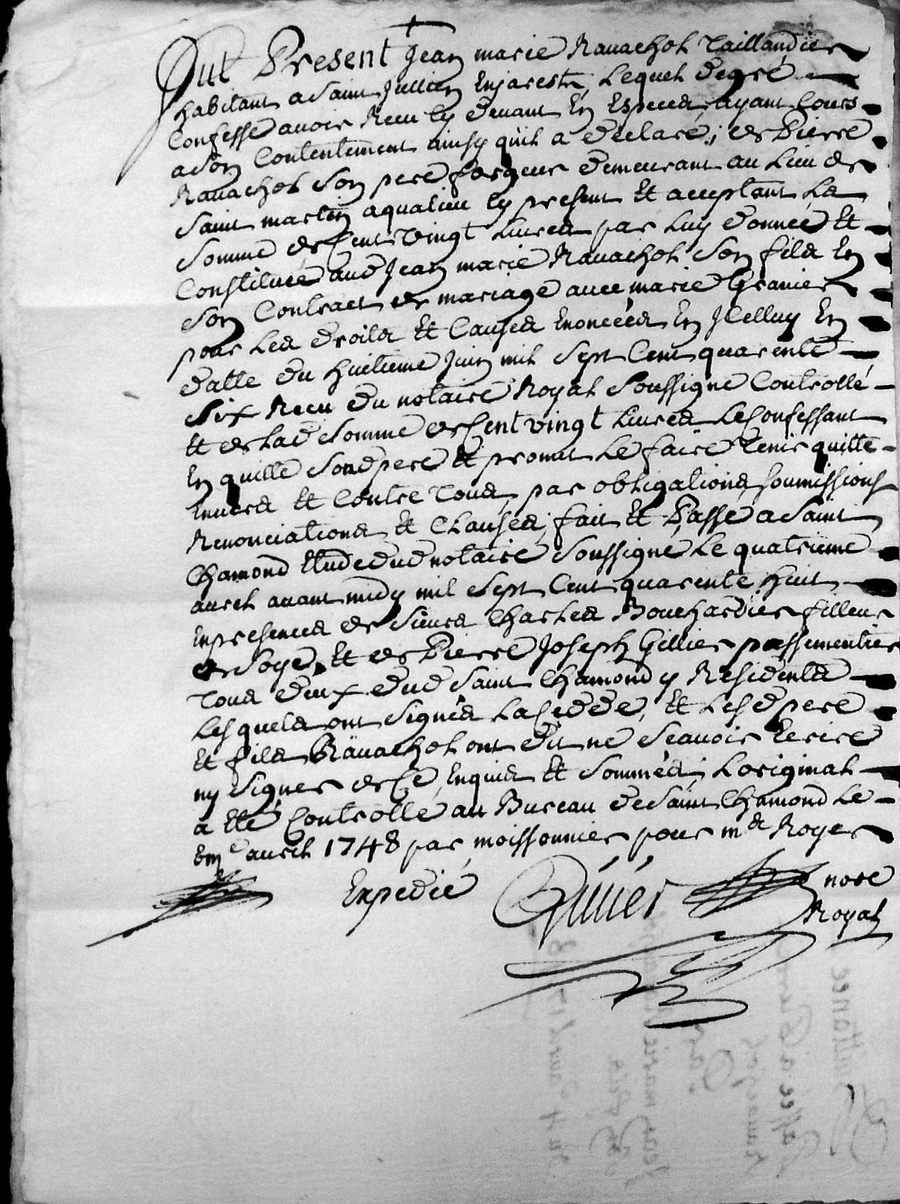 Fut Present Jean marie Ravachol Taillandier
habitant a Saint Jullien Enjarest, Lequel de gré
Confesse avoir Receu cy devant En Especes ayant Cours
a Son Contentement ainsy qu'il a declaré; de Pierre
Ravachol Son pere forgeur demeurant au Lieu de
Saint martin aqualieu cy present Et aceptant La
Somme de Cent vingt Livres par Luy donnée Et
Constituée aud Jean marie Ravachol Son fils En
Son Contract de mariage avec marie Granier
pour Les droits Et Causes Enoncées En Jcelluy En
datte du huitieme Juin mil Sept Cent quarente
Six Receu du notaire Royal Soussigné Controllé
Et de Lad Somme de Cent vingt Livres Le Confessant
En quitte Sond pere Et promet Le faire Tenir quitte
Envers Et Contre Tous, par obligations Soumissions
Renonciations Et Clauses, fait Et Passé a Saint
Chamond Etude dud notaire Soussigné Le quatrieme
avril avant midy mil Sept Cent quarente huit
En presences de Sieurs Charles Bouchardier filleur
de Soye, Et de Pierre Joseph Gillier passementier
Tous deux dud Saint Chamond y Residents
Lesquels ont Signés La Cedde, Et Lesd pere
Et fils Ravachol ont dit ne Scavoir Ecrire
ny Signer de Ce Enquis Et Sommés; Loriginal
a Eté Controllé au Bureau de Saint Chamond Le
avril 1748 par moissonnier pour mr Royer
Expedié
nore
Royal